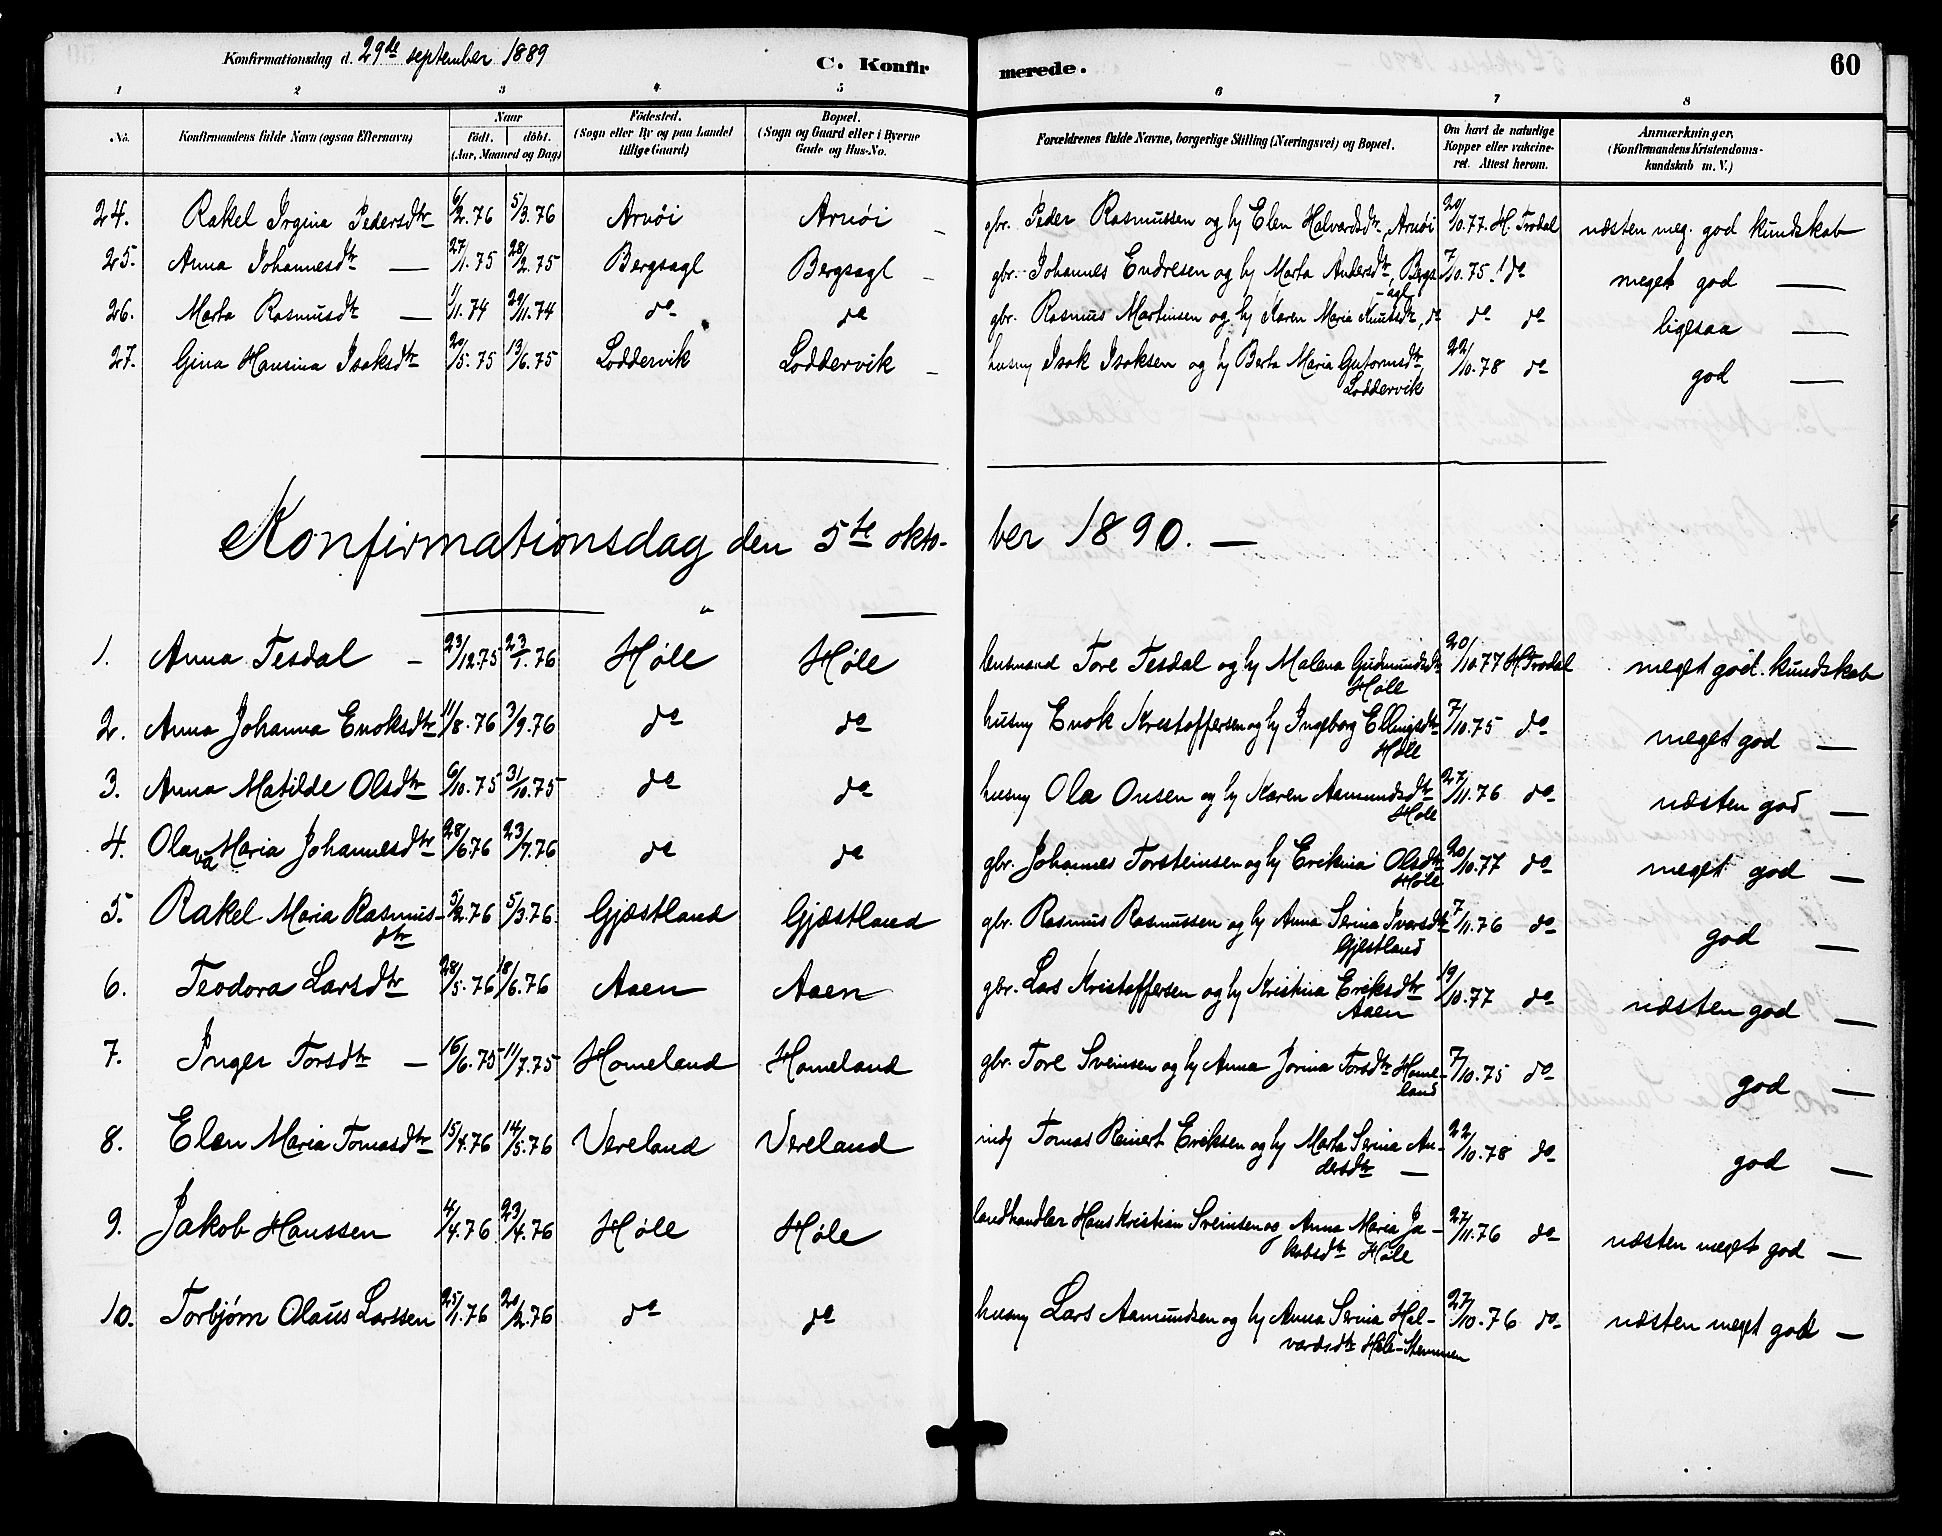 Konfirmationsdag d. 29de september 1889 C. Konfirmerede. 60
1 2 3 4 5 6 7 8
No. Konfirmandens fulde Navn (ogsaa Efternavn) Naar født. døbt. (Aar, Maaned og Dag) Fødested. (Sogn eller By og paa Landet tillige Gaard) Bopæl. (Sogn og Gaard eller i Byerne Gade og Hus-No. Forældrenes fulde Navne, borgerlige Stilling (Næringsvei) og Bopæl. Om havt de naturlige Kopper eller vakcineret. Attest herom. Anmærkninger, (Konfirmandens Kristendomskundskab m. V.)
24. Rakel Irgina Pedersdtr 6/2.76 5/3.76 Arnøi Arnøi gbr. Peder Rasmussen og hu Elen Halvardsdtr, Arnøi 20/10.77. H. Trodal næsten meg. god kundskab
25. Anna Johannesdtr — 27/1.75 28/2.75 Bergsagl Bergsagl gbr. Johannes Endresen og hu Marta Andersdtr, Bergsagl 7/10.75 do meget god —
26. Marta Rasmusdtr — 1/11.74 29/11.74 do do gbr. Rasmus Martinsen og hu Karen Maria Knutsdtr, do do do ligesaa —
27. Gina Hansina Isaksdtr 20/5.75 13/6.75 Loddervik Loddervik husmy Isak Isaksen og hu Berta Maria Gutormsdtr, Loddervik 22/10.78 do god —
Konfirmationsdag den 5te oktober 1890. —
1. Anna Tesdal — 23/12.75 23/1.76 Høle Høle lensmand Tore Tesdal og hu Malena Gudmundsdtr Høle 20/10.77 H Trodal meget god kundskab
2. Anna Johanna Enoksdtr 11/8.76 3/9.76 do do husmy Enok Kristoffersen og hu Ingeborg Ellingsdtr Høle 7/10.75 do meget god —
3. Anna Matilde Olsdtr 6/10.75 31/10.75 do do husmy Ola Onsen og hu Karen Aamundsdtr Høle 27/11.76 do næsten god —
4. Olava Maria Johannesdtr 28/6.76 23/7.76 do do gbr. Johannes Torsteinsen og hu Erikina Olsdtr Høle 20/10.77 do meget god —
5. Rakel Maria Rasmusdtr 5/2.76 5/3.76 Gjæstland Gjæstland gbr. Rasmus Rasmussen og hu Anna Serina Ivarsdtr Gjæstland 7/11.76 do god —
6. Teodora Larsdtr 28/5.76 18/6.76 Aaen Aaen gbr. Lars Kristoffersen og hu Kristina Eriksdtr Aaen 19/10.77 do næsten god —
7. Inger Torsdtr — 16/6.75 11/7.75 Homeland Homeland gbr. Tore Sveinsen og hu Anna Jorina Torsdtr Homeland 7/10.75 do god —
8. Elen Maria Tomasdtr 15/4.76 14/5.76 Vereland Vereland indj Tomas Reinert Eriksen og hu Marta Serina Andersdtr — 22/10.78 do god —
9. Jakob Hanssen 4/4.76 23/4.76 Høle Høle landhandler Hans Kristian Sveinsen og Anna Maria Jakobsdtr Høle 27/11.76 do næsten meget god —
10. Torbjørn Olaus Larssen 25/1.76 20/2.76 do do husmy Lars Aamundsen og hu Anna Serina Halvardsdtr Høle-Stemmen 27/10.76 do næsten meget god —